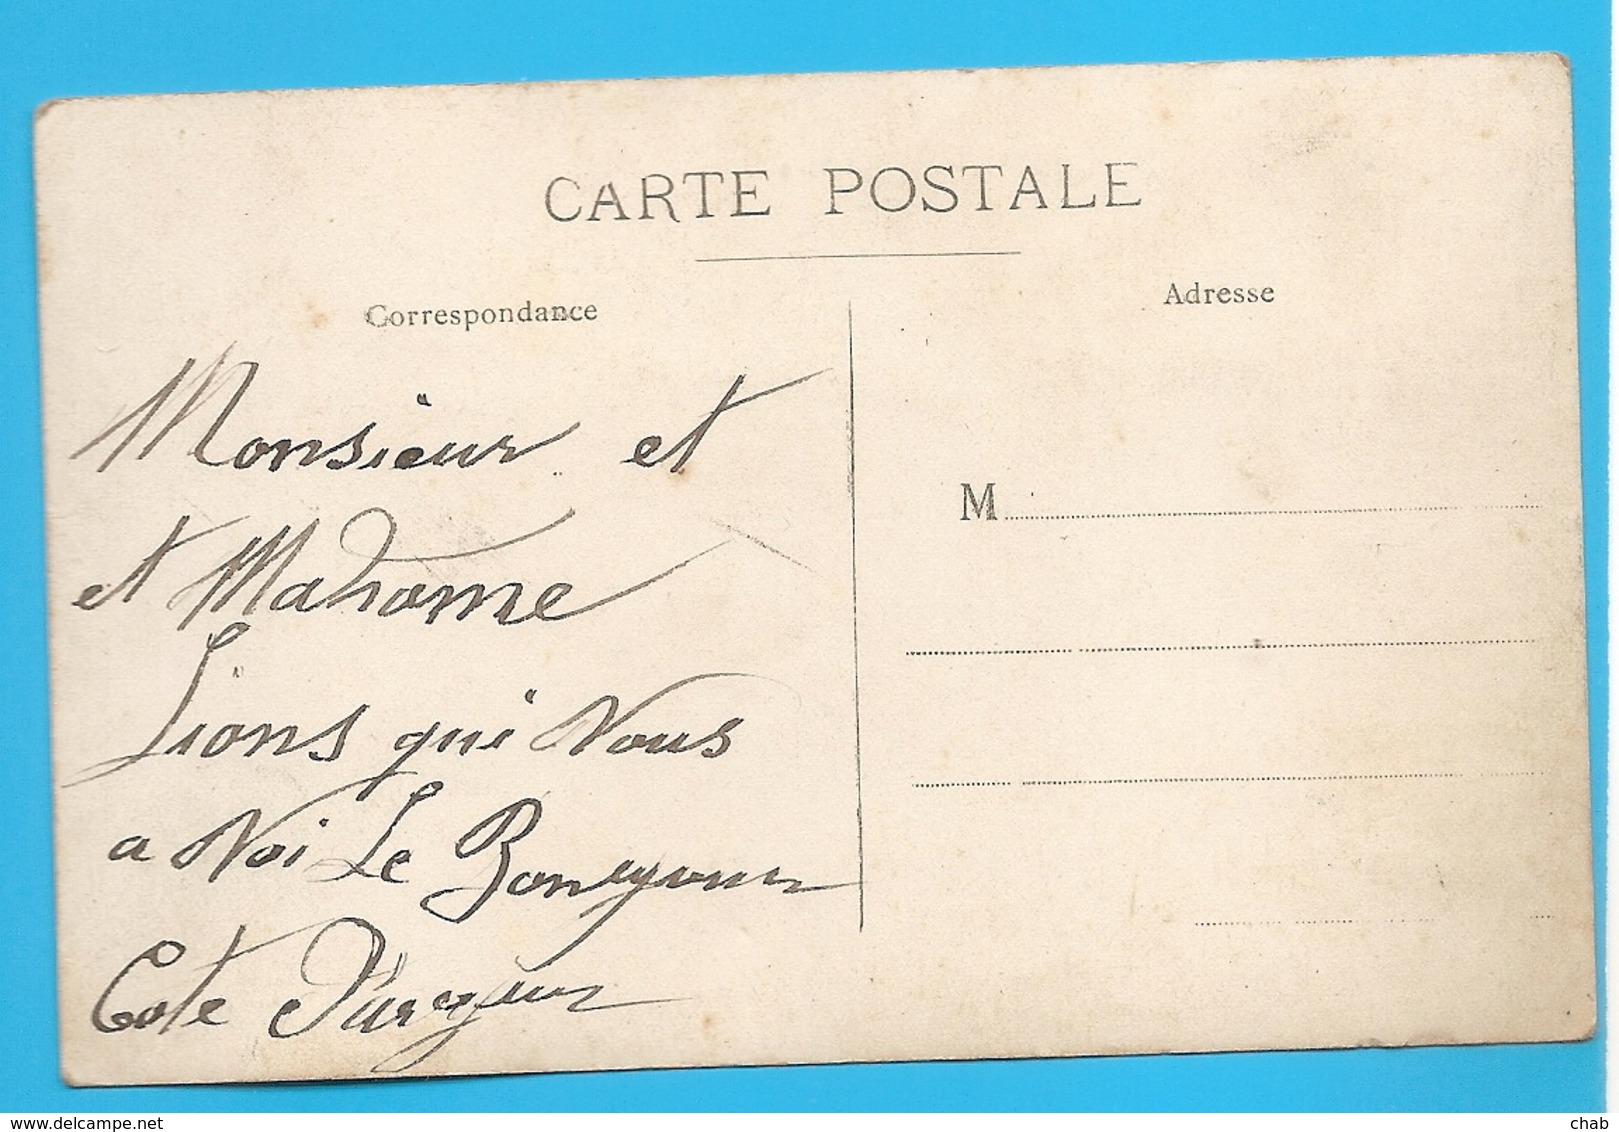 CARTE POSTALE
Correspondance
Adresse
Monsieur et
et Madame
Lions qui Vous
a Voi Le Bonzyour
M
www.delcampe.net
chab